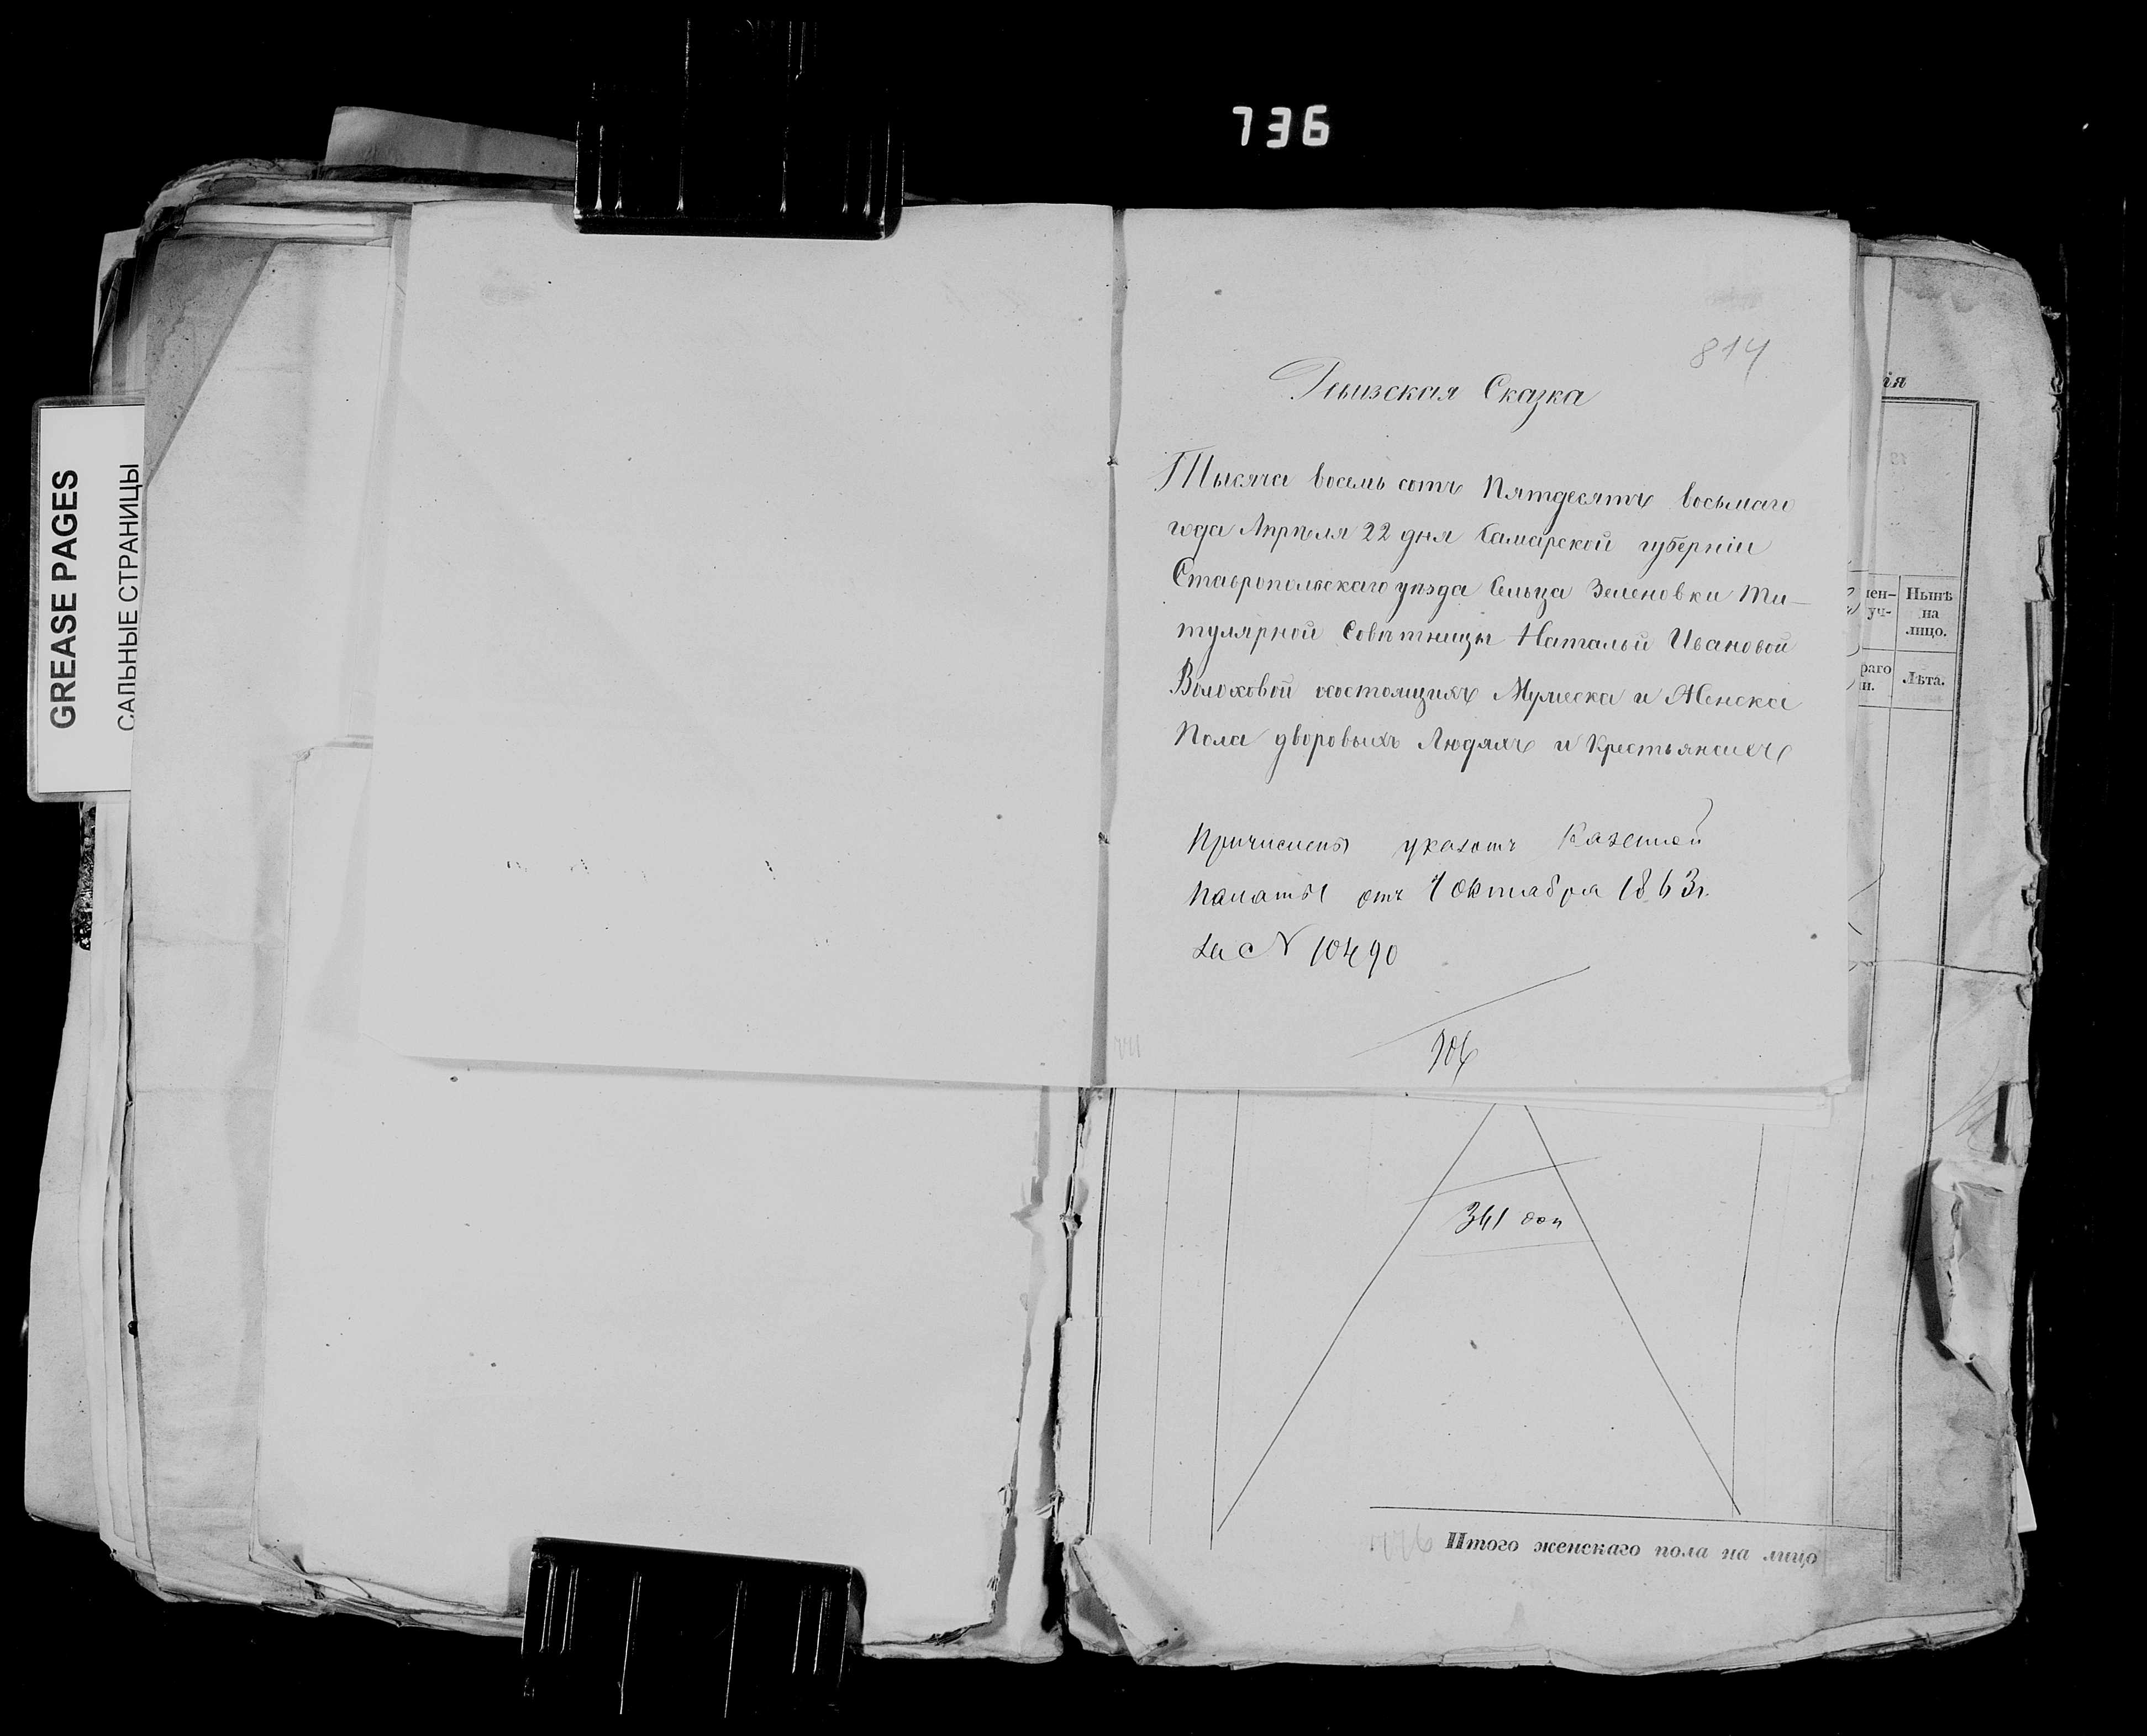 736
GREASE PAGES
САЛЬНЫЕ СТРАНИЦЫ
814
Ревизская Сказка
Тысяча восемь сотъ Пятдесятъ восьмаго
года Апрѣля 22 дня Самарской губерніи
Ставропольскаго уѣзда Сельца Зеленовки Ти–
тулярной Совѣтницы Натальи Ивановой
Волоховой осостоящихъ Мужеска и Женска
Пола дворовыхъ Людяхъ и Крестьянахъ
Причислены указомъ Казенной
палаты отъ 7 Октября 1863 г.
За № 10490
706
ія
лен- уч-
Нынѣ на лицо.
раго
Лѣта.
341 доп
Итого женскаго пола на лицо